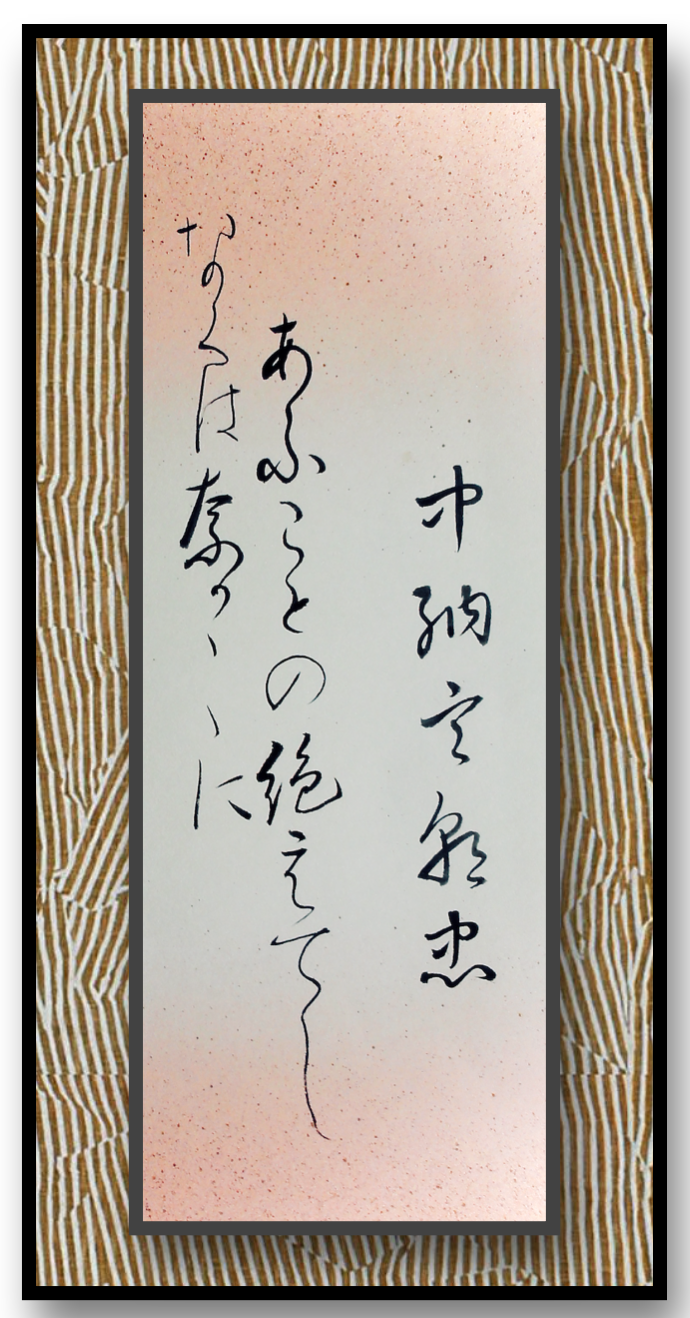 中納言朝忠
あふことの絶えてし
なくは奈か〳〵に